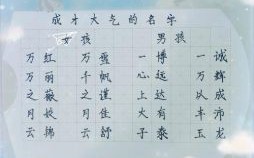 成才大气的名字
女孩 男孩
万红 万盈 一博 一诚
万丽 千帆 心远 万辉
之薇 之谨 上达 以成
月姣 月佳 大有 丰沛
云锦 云舒 子泰 玉龙